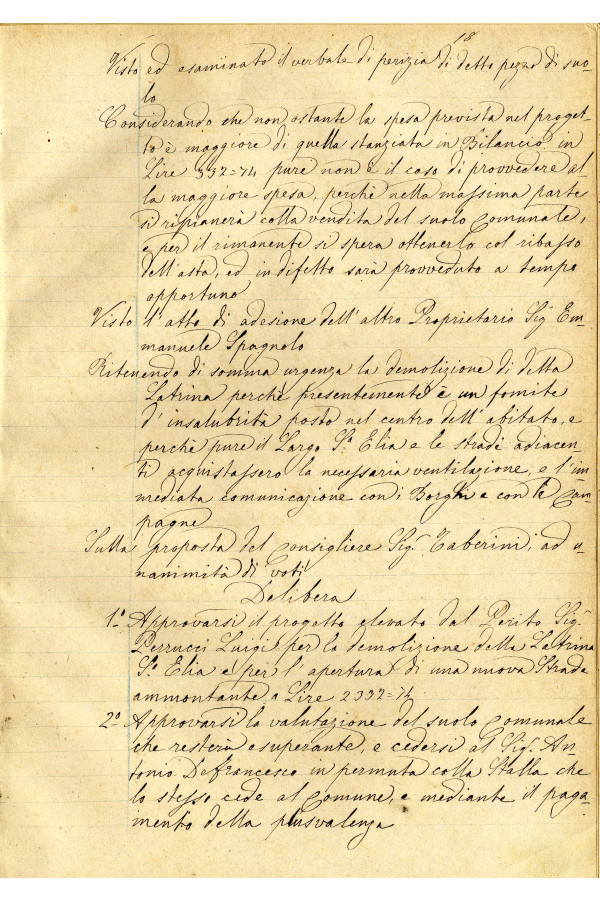 18
Visto ed esaminato il verbale di perizia di detto pezzo di suo-
lo
Considerando che non ostante la spesa prevista nel proget-
to è maggiore di quella stanziata in Bilancio in
Lire 332=74 pure non è il caso di provvedere al
la maggiore spesa, perchè nella massima parte
si ripianerà colla vendita del suolo Comunale,
e per il rimanente si spera ottenerlo col ribasso
dell'asta, ed in difetto sarà provveduto a tempo
opportuno
Visto l'atto di adesione dell'altro Proprietario Sig Em-
manuele Spagnolo
Ritenendo di somma urgenza la demolizione di detta
Latrina perchè presentemente è un fomite
d'insalubrità posto nel centro dell'abitato, e
perchè pure il Largo S. Elia e le strade adiacen
ti acquistassero la necessaria ventilazione, e l'im
mediata comunicazione con i Borghi e con le Cam-
pagne
Sulla proposta del Consigliere Sig. Taberini, ad u-
nanimità di voti
Delibera
1.º Approvarsi il progetto elevato dal Perito Sig.
Perrucci Luigi per la demolizione della Latrina
S. Elia e per l'apertura di una nuova Strada
ammontante a Lire 2332=74
2.º Approvarsi la valutazione del suolo Comunale
che resterà esuperante, e cedersi al Sig. An-
tonio Defrancesco in permuta colla Stalla che
lo stesso cede al Comune, e mediante il paga-
mento della plusvalenza